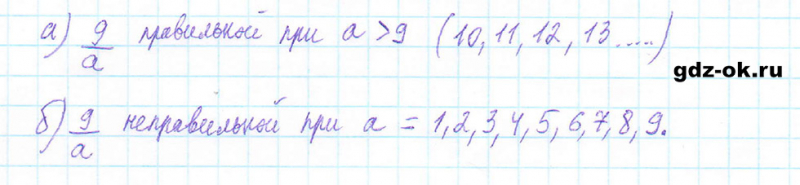 а) 9/а правильной при а > 9 (10, 11, 12, 13.....)
gdz-ok.ru
б) 9/а неправильной при а = 1, 2, 3, 4, 5, 6, 7, 8, 9.